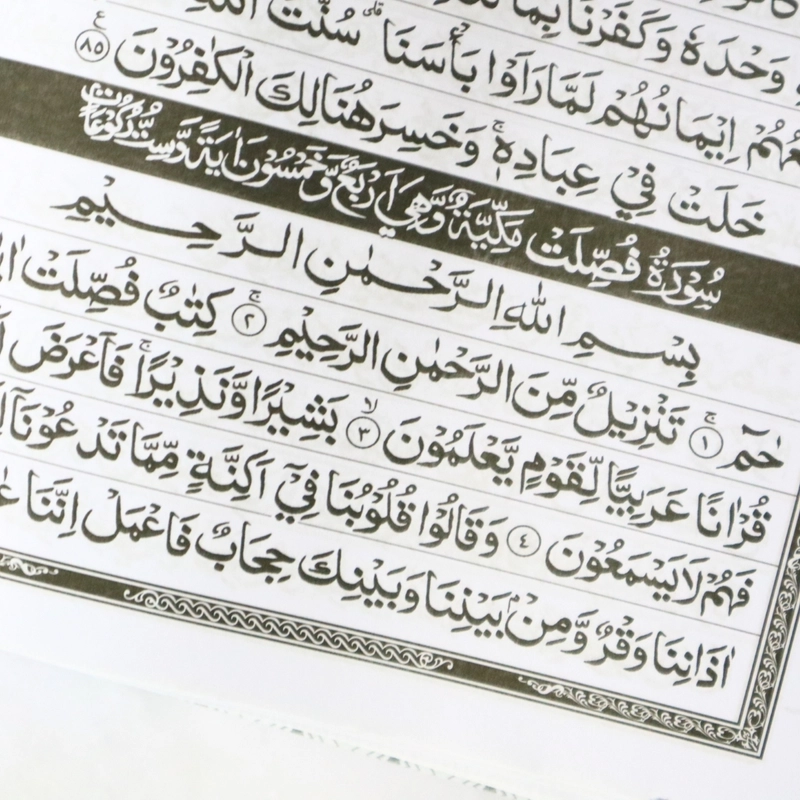 وَحْدَهٗ وَكَفَرْنَا بِمَا
اِيْمَانُهُمْ لَمَّا رَاَوْا بَاْسَنَا ؕ سُنَّتَ
خَلَتْ فِيْ عِبَادِهٖ ۚ وَخَسِرَ هُنَالِكَ الْكٰفِرُوْنَ ﴿٨٥﴾
سُوْرَةُ فُصِّلَتْ مَكِّيَّةٌ وَّهِيَ اَرْبَعٌ وَّخَمْسُوْنَ اٰيَةً وَّسِتُّ رُكُوْعَاتٍ
بِسْمِ اللّٰهِ الرَّحْمٰنِ الرَّحِيْمِ
حٰمٓ ۚ ﴿١﴾ تَنْزِيْلٌ مِّنَ الرَّحْمٰنِ الرَّحِيْمِ ۚ ﴿٢﴾ كِتٰبٌ فُصِّلَتْ
قُرْاٰنًا عَرَبِيًّا لِّقَوْمٍ يَّعْلَمُوْنَ ۙ ﴿٣﴾ بَشِيْرًا وَّنَذِيْرًا ۚ فَاَعْرَضَ
فَهُمْ لَا يَسْمَعُوْنَ ﴿٤﴾ وَقَالُوْا قُلُوْبُنَا فِيْٓ اَكِنَّةٍ مِّمَّا تَدْعُوْنَآ
اٰذَانِنَا وَقْرٌ وَّمِنْۢ بَيْنِنَا وَبَيْنِكَ حِجَابٌ فَاعْمَلْ اِنَّنَا